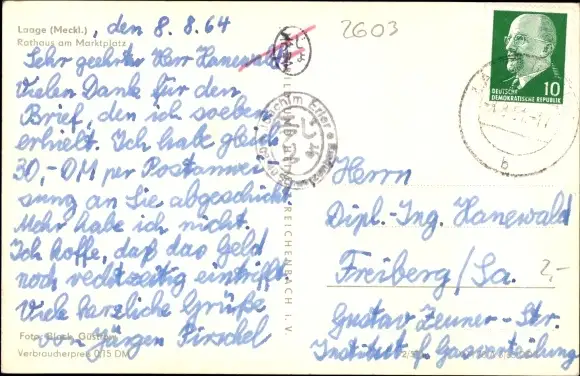 Laage (Meckl.)
Rathaus am Marktplatz
, den 8.8.64
Sehr geehrter Herr Hanewald
Vielen Dank für den
Brief, den ich soeben
erhielt. Ich habe gleich
30,- DM per Postanwei
sung an Sie abgeschickt
Mehr habe ich nicht.
Ich hoffe, daß das Geld
noch rechtzeitig eintrifft.
Viele herzliche Grüße
von Jürgen Pirschel
Foto: Block, Güstrow
Verbraucherpreis 0,15 DM
REICHENBACH I. V.
2603
DEUTSCHE
DEMOKRATISCHE REPUBLIK
10
b
Herrn
Dipl.-Ing. Hanewald
Freiberg/Sa.
2,-
Gustav Zeuner-Str.
Institut f. Gasverteilung